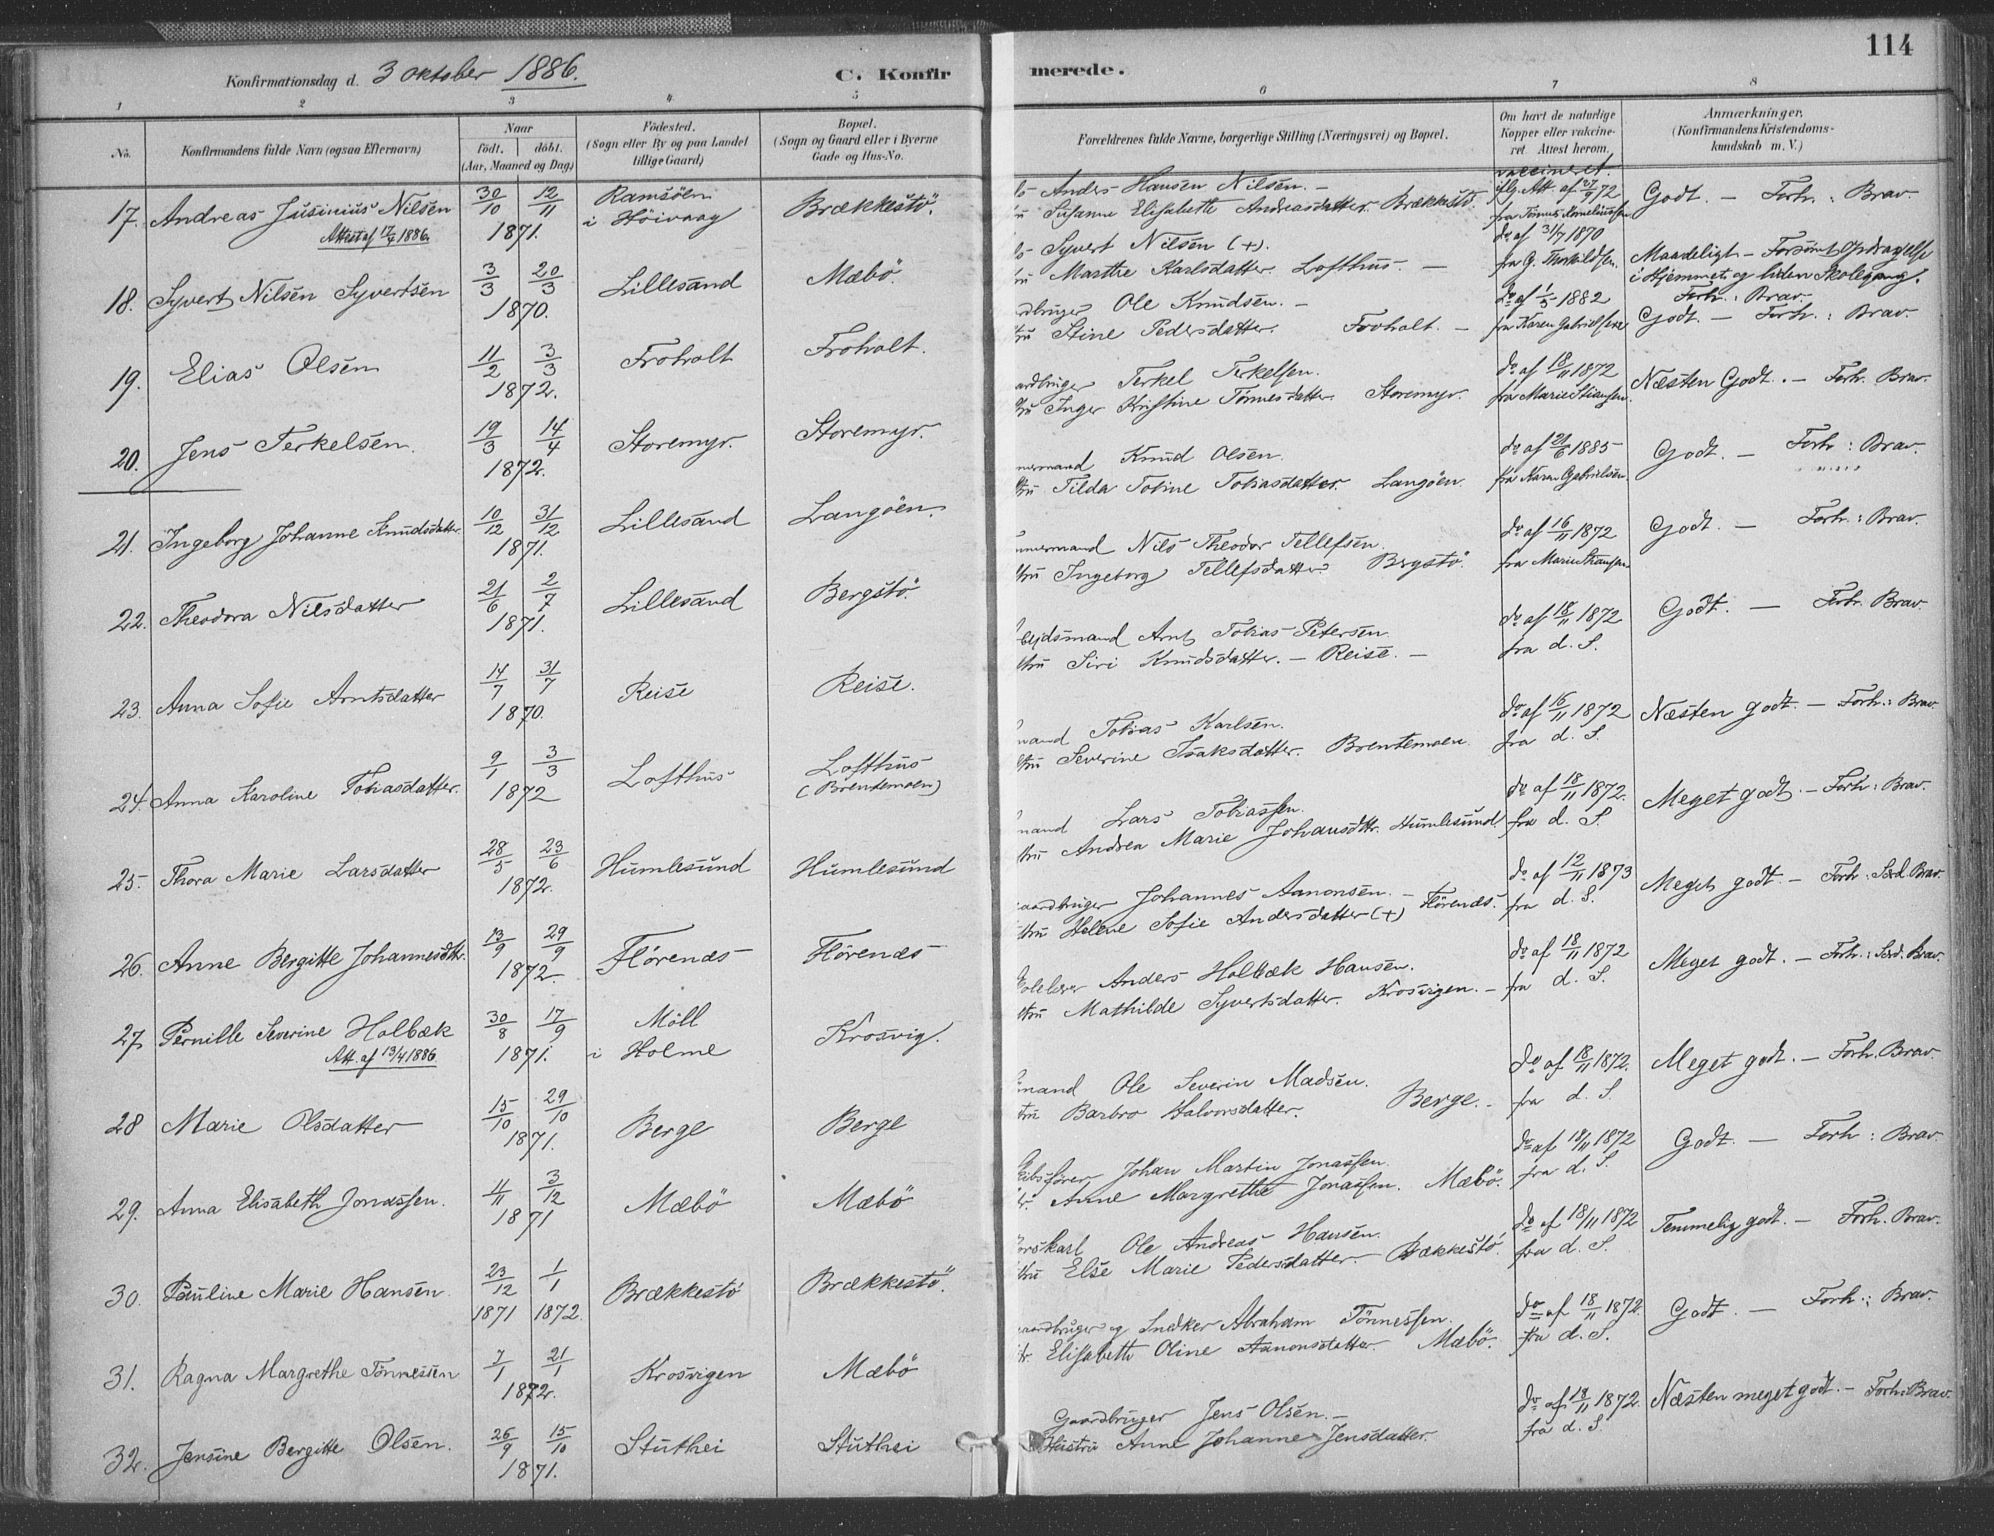 114
Konfirmationsdag d. 3 oktober 1886.
C. Konfirmerede.
1 2 3 4 5 6 7 8
No.
Konfirmandens fulde Navn (ogsaa Efternavn)
Naar
født. døbt.
(Aar, Maaned og Dag)
Fødested.
(Sogn eller By og paa Landet
tillige Gaard)
Bopæl.
(Sogn og Gaard eller i Byerne
Gade og Hus-No.
Forældrenes fulde Navne, borgerlige Stilling (Næringsvei) og Bopæl.
Om havt de naturlige
Kopper eller vaccine-
ret Attest herom.
Anmærkninger.
(Konfirmandens Kristendoms-
kundskab m. V.)
17. Andreas Jusinius Nilsen 30/10 12/11 1871. Ramsöen i Höivaag Brækkestö.
Attest af 17/4 1886.
Anders Hansen Nilsen. –
Susanne Elisabeth Andreasdatter. Brækkestö.
vaccineret.
iflg. Att. af 27/9 72
fra Tönnes Korneliussen
Godt. – Forh.: Brav.
18. Syvert Nilsen Syvertsen 3/3 20/3 1870. Lillesand Mæbö.
Syvert Nilsen (+).
Marthe Karlsdatter. Lofthus. –
do af 31/7 1870
fra G. Thorkildsen.
Maadeligt – Forsömt Opdragelse
i Hjemmet og liden Skolegang.
Forh.: Brav.
19. Elias Olsen 11/2 3/3 1872. Froholt Froholt.
Ole Knudsen. –
Stine Pedersdatter. Froholt. –
do af 1/5 1882
fra Karen Gabrielsen
Godt. – Forh.: Brav.
20. Jens Terkelsen. 19/3 14/4 1872. Storemyr. Storemyr.
Terkel Terkelsen.
Inger Kristine Tönnesdatter. Storemyr.
do af 18/11 1872
fra Marie Stiansen.
Næsten Godt. – Forh. Brav.
21. Ingeborg Johanne Knudsdatter 10/12 31/12 1871. Lillesand Langöen.
Knud Olsen.
Tilda Tobine Tobiasdatter. Langöen.
do af 21/6 1885
fra Karen Gabrielsen.
Godt. – Forh: Brav.
22. Theodora Nilsdatter 21/6 2/7 1871. Lillesand Bergstö.
Nils Theodor Tellefsen.
Ingeborg Tellefsdatter. Bergstö.
do af 16/11 1872
fra Marie Stiansen
Godt. – Forh.: Brav.
23. Anna Sofie Arntsdatter 14/7 31/7 1870. Reise Reise.
Arnt Tobias Petersen
Siri Knudsdatter. – Reise. –
do af 18/11 1872
fra d. S.
Godt. – Forh. Brav.
24. Anna Karoline Tobiasdatter. 9/1 3/3 1872 Lofthus Lofthus
(Brentemoen)
Tobias Karlsen.
Severine Isaksdatter. Brentemoen.
do af 16/11 1872
fra d. S.
Næsten godt. – Forh.: Brav
25. Thora Marie Larsdatter 28/5 23/6 1872. Humlesund Humlesund
Lars Tobiassen.
Andrea Marie Johansdtr. Humlesund.
do af 18/11 1872.
fra d. S.
Meget godt. – Forh.: Brav.
26. Anne Bergitte Johannesdtr. 13/9 29/9 1872. Flörenæs Flörenæs
Johannes Aanonsen. –
Helene Sofie Andersdatter (+) Flörenæs.
do af 12/11 1873
fra d. S.
Meget godt. – Forh: Særd. Brav.
27. Pernille Severine Holbæk 30/8 17/9 1871. Möll i Holme Krosvig.
Att. af 13/4 1886
Anders Holbæk Hansen.
Mathilde Syvertsdatter. Krosvigen. –
do af 18/11 1872
fra d. S.
Meget godt. – Forh.: Særd. Brav.
28 Marie Olsdatter 15/10 29/10 1871. Berge Berge
Ole Severin Madsen.
Barbro Halvorsdatter. Berge. –
do af 18/11 1872.
fra d. S.
Meget godt. – Forh. Brav.
29. Anna Elisabeth Jonassen. 4/11 3/12 1871 Mæbö Mæbö
Johan Martin Jonassen.
Anne Margrethe Jonassen. Mæbö.
do af 18/11 1872
fra d. S.
Godt. – Forh: Brav.
30. Pauline Marie Hansen. 23/12 1871 1/1 1872. Brækkestö Brækkestö.
Ole Andreas Hansen.
Else Marie Pedersdatter. Brækkestö.
do af 18/11 1872
fra d. S.
Temmelig godt. – Forh. Brav.
31. Ragna Margrethe Tönnessen 7/1 21/1 1872. Krosvigen Mæbö
og Snedker Abraham Tönnessen.
Elisabeth Oline Aanonsdatter. Mæbö.
do af 18/11 1872.
fra d. S.
Godt. – Forh.: Brav.
32. Jensine Bergitte Olsen. 26/9 15/10 1871. Stuthei Stuthei
Gaardbruger Jens Olsen. –
Hustru Anne Johanne Jensdatter.
do af 18/11 1872.
fra d. S.
Næsten meget godt. – Forh: Brav.